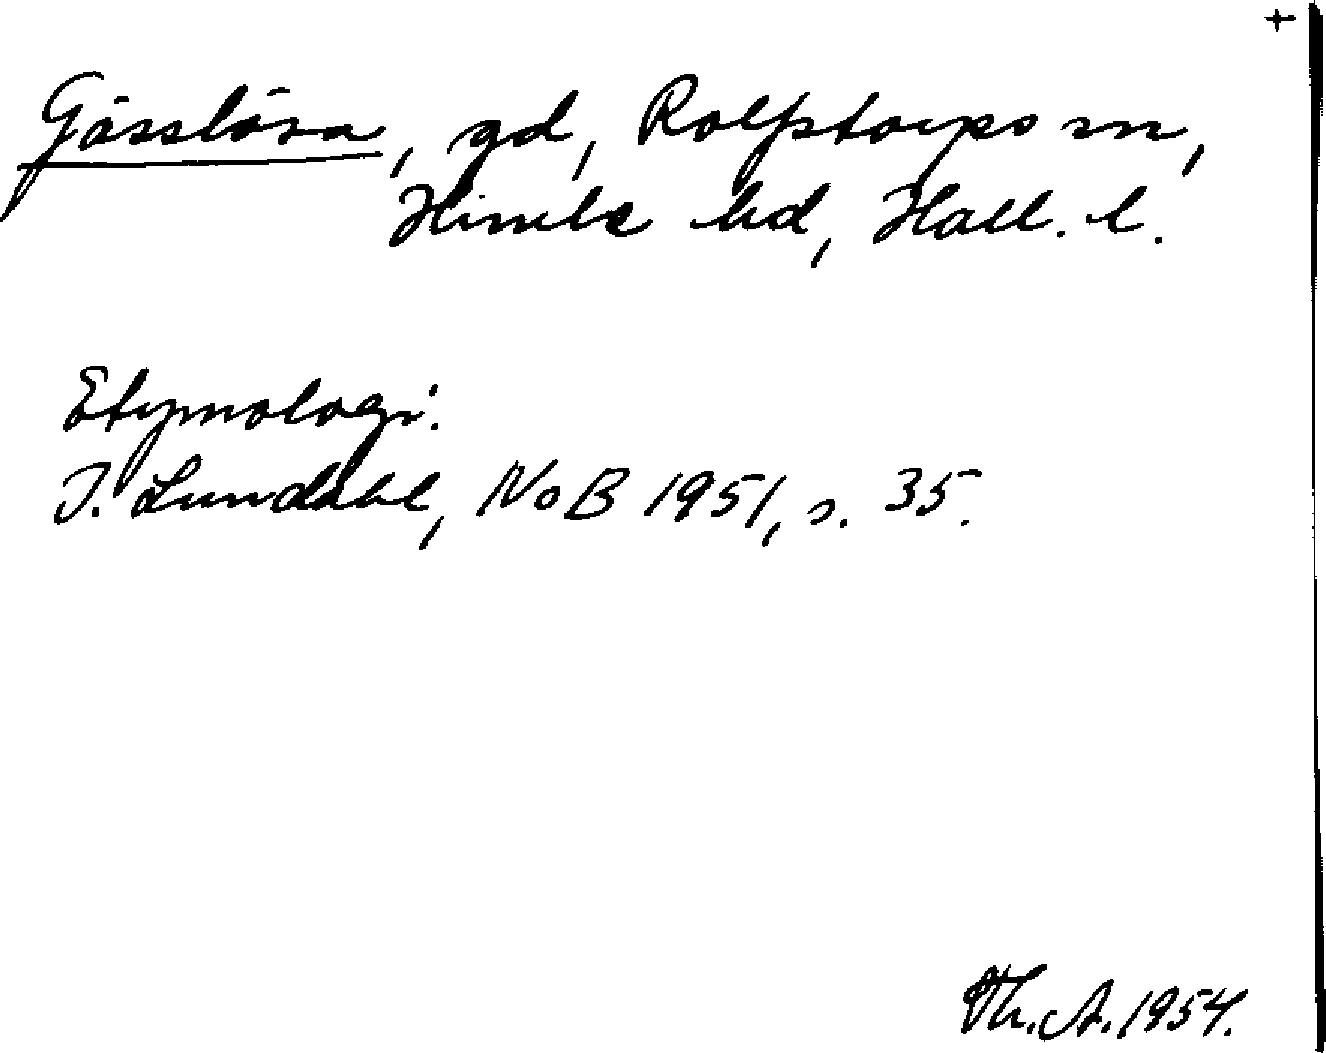 +
Gässlösa, gd, Rolfstorps sn,
Himle hd, Hall. l.
Etymologi:
I. Lundahl, NoB 1951, s. 35.
Th. A. 1954.